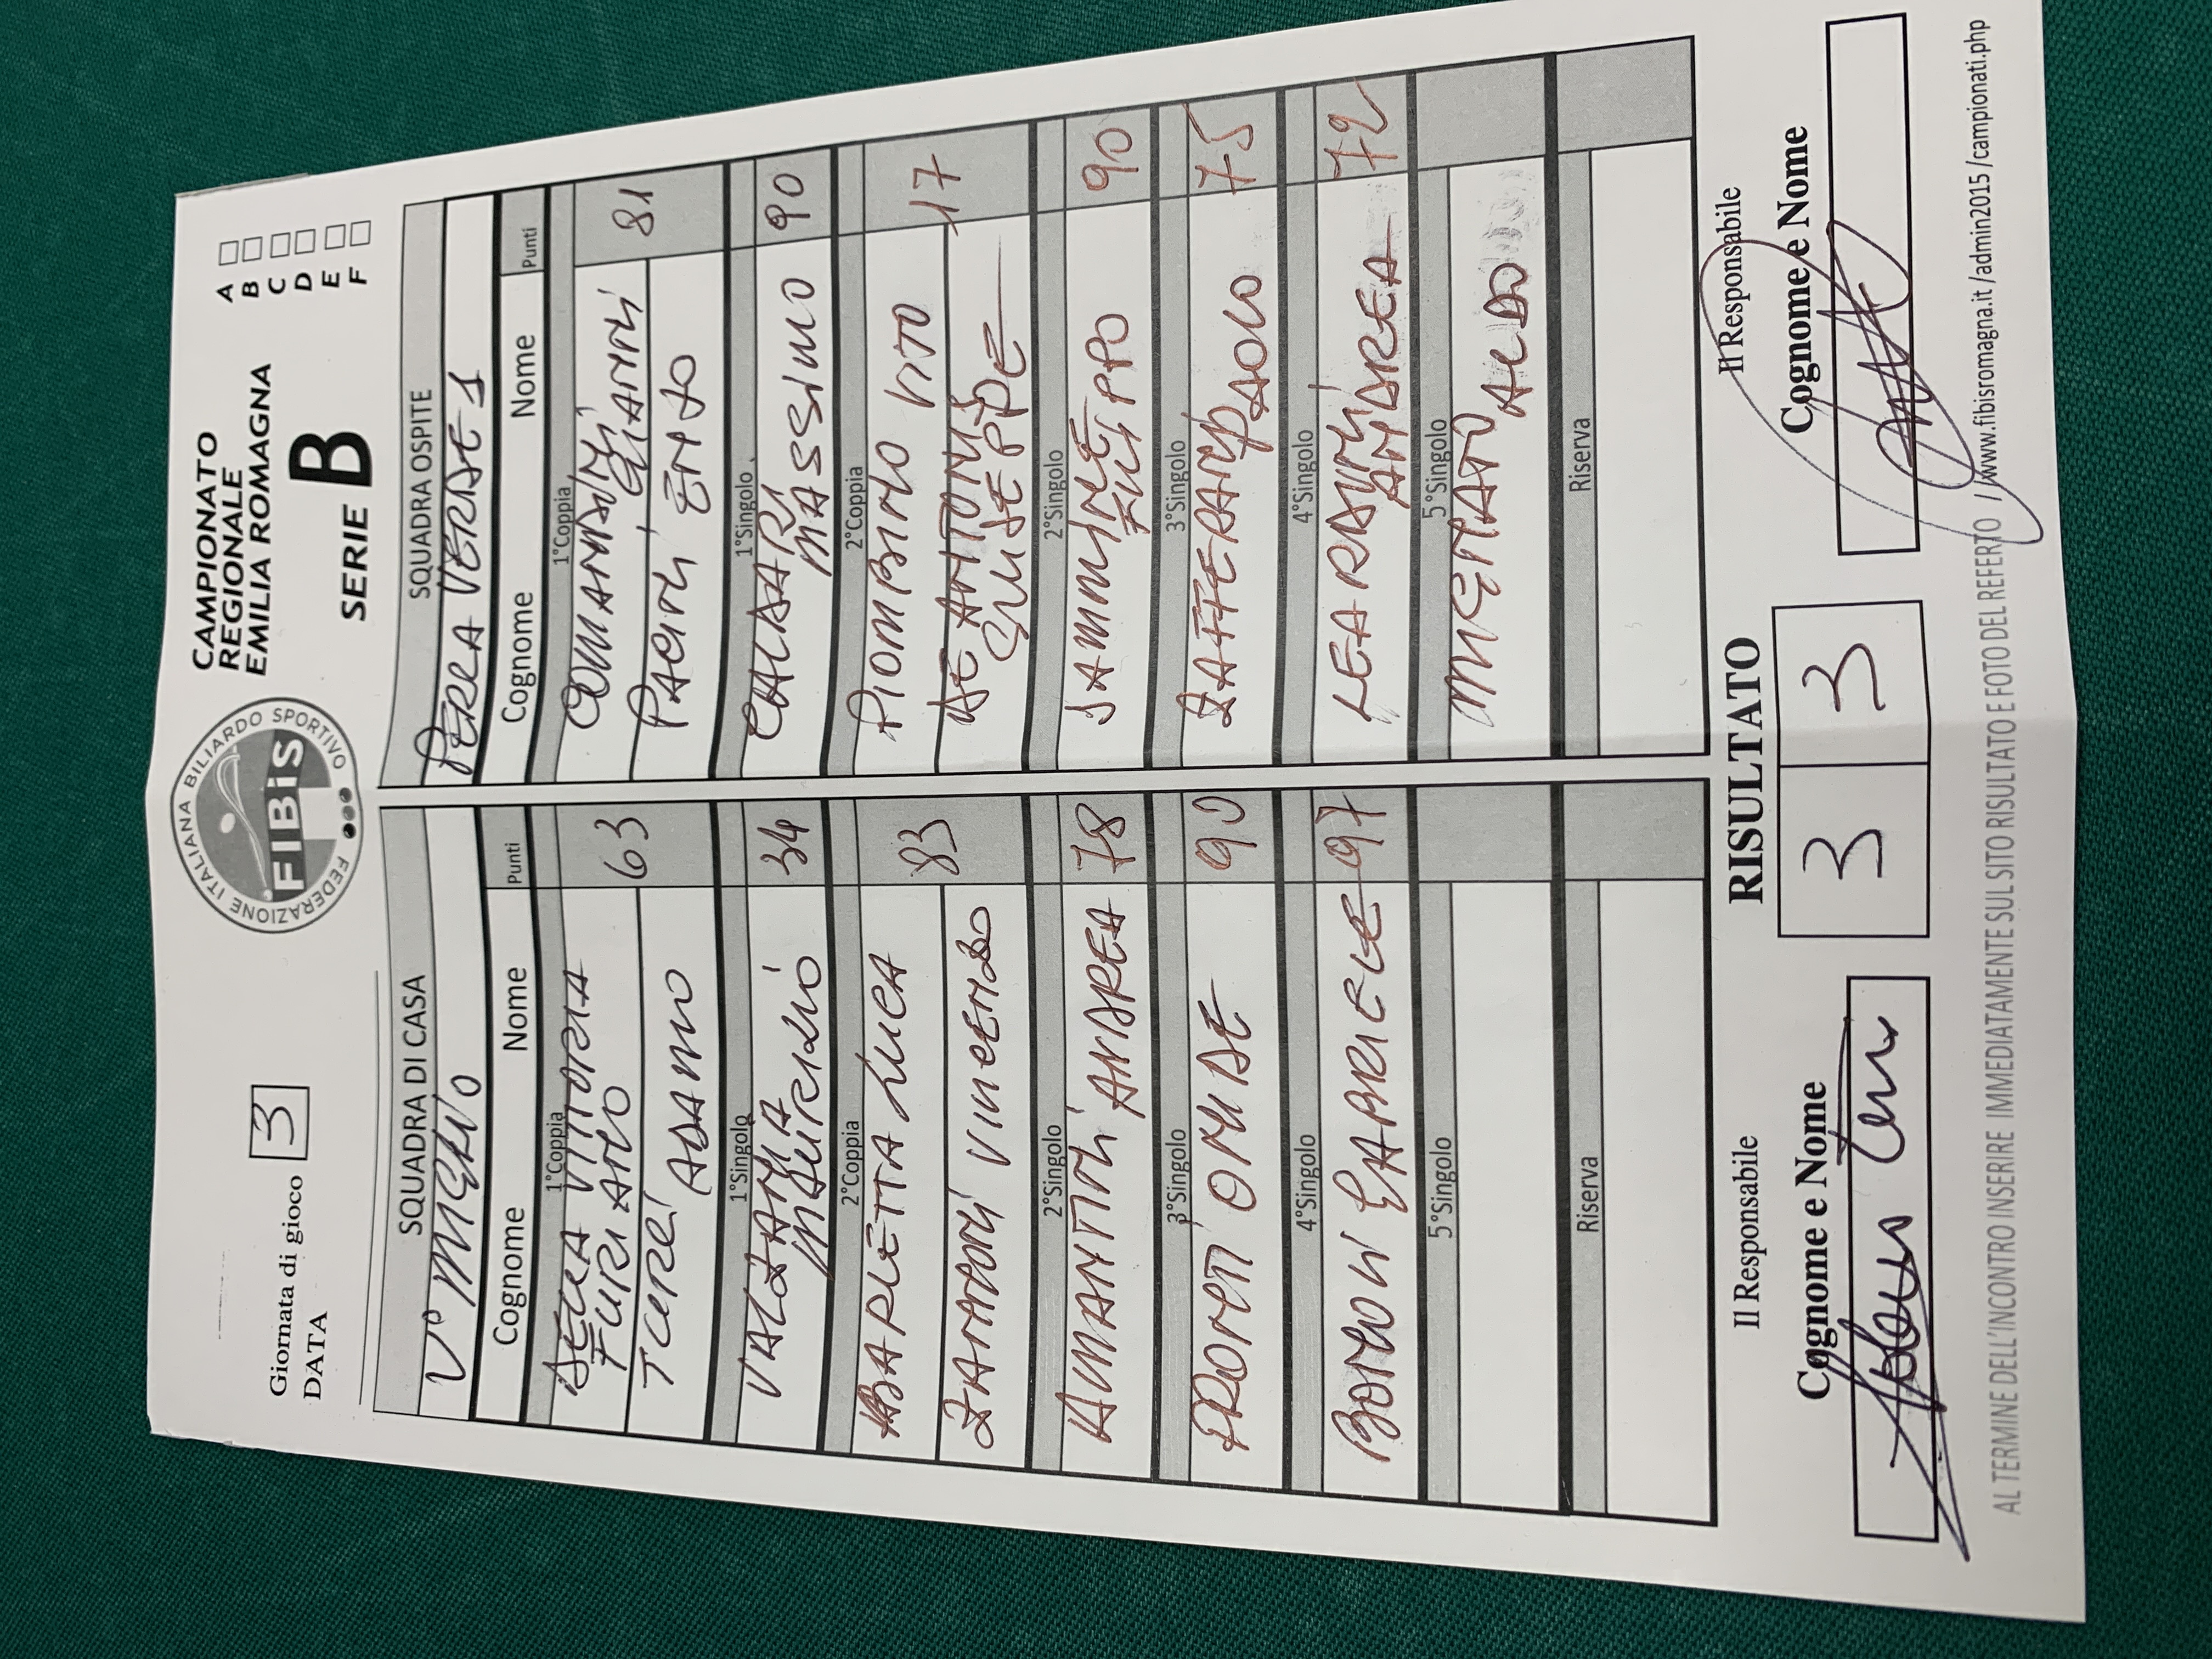 Giornata di gioco 3
DATA
FEDERAZIONE ITALIANA BILIARDO SPORTIVO
FIBiS
CAMPIONATO
REGIONALE
EMILIA ROMAGNA
SERIE B
A
B
C
D
E
F
SQUADRA DI CASA
SQUADRA OSPITE
PERLA VERDE 1
Cognome Nome Punti
Cognome Nome Punti
1°Coppia
DELLA VITTORIA
FURIANO 63
TURCI ADAMO
1°Coppia
COMANDINI
GIANNI 81
PACINI ENZO
1°Singolo
VALZANIA
MAURIZIO 34
1°Singolo
CALLARI
MASSIMO 90
2°Coppia
BARLETTA LUCA 83
ZANNONI VINCENZO
2°Coppia
PIOMBINO VITO 17
DE ANTONIS
GIUSEPPE
2°Singolo
AMANTINI ANDREA 78
2°Singolo
FILIPPO 90
3°Singolo
PRONTI OMIDE 90
3°Singolo
ZAFFERANI PAOLO 75
4°Singolo
BONOLI GABRIELE 97
4°Singolo
LEARDINI
ANDREA 72
5°Singolo
5°Singolo
ALDO
Riserva
Riserva
Il Responsabile
RISULTATO
Il Responsabile
Cognome e Nome
3 3
Cognome e Nome
AL TERMINE DELL'INCONTRO INSERIRE IMMEDIATAMENTE SUL SITO RISULTATO E FOTO DEL REFERTO / www.fibisromagna.it /admin2015 /campionati.php